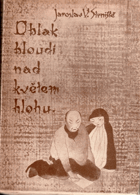 Jaroslav V.
Oblak
bloudí
nad
květem
hlohu.